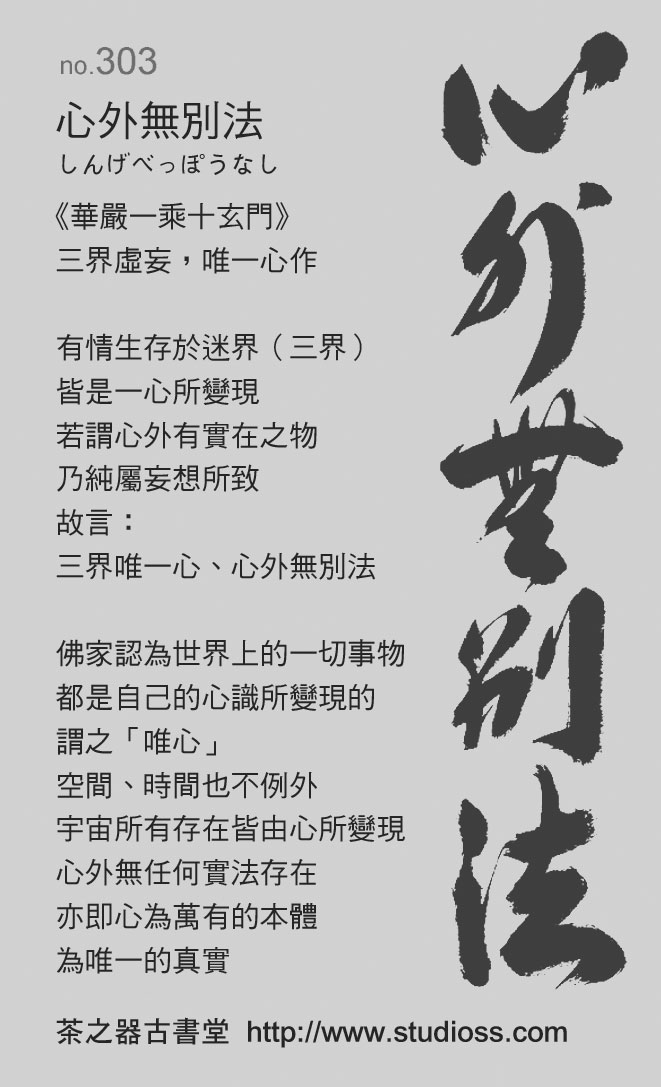 no.303
心外無別法
しんげべっぽうなし
《華嚴一乘十玄門》
三界虛妄，唯一心作
有情生存於迷界（三界）
皆是一心所變現
若謂心外有實在之物
乃純屬妄想所致
故言：
三界唯一心、心外無別法
佛家認為世界上的一切事物
都是自己的心識所變現的
謂之「唯心」
空間、時間也不例外
宇宙所有存在皆由心所變現
心外無任何實法存在
亦即心為萬有的本體
為唯一的真實
茶之器古書堂 http://www.studioss.com
心外無別法